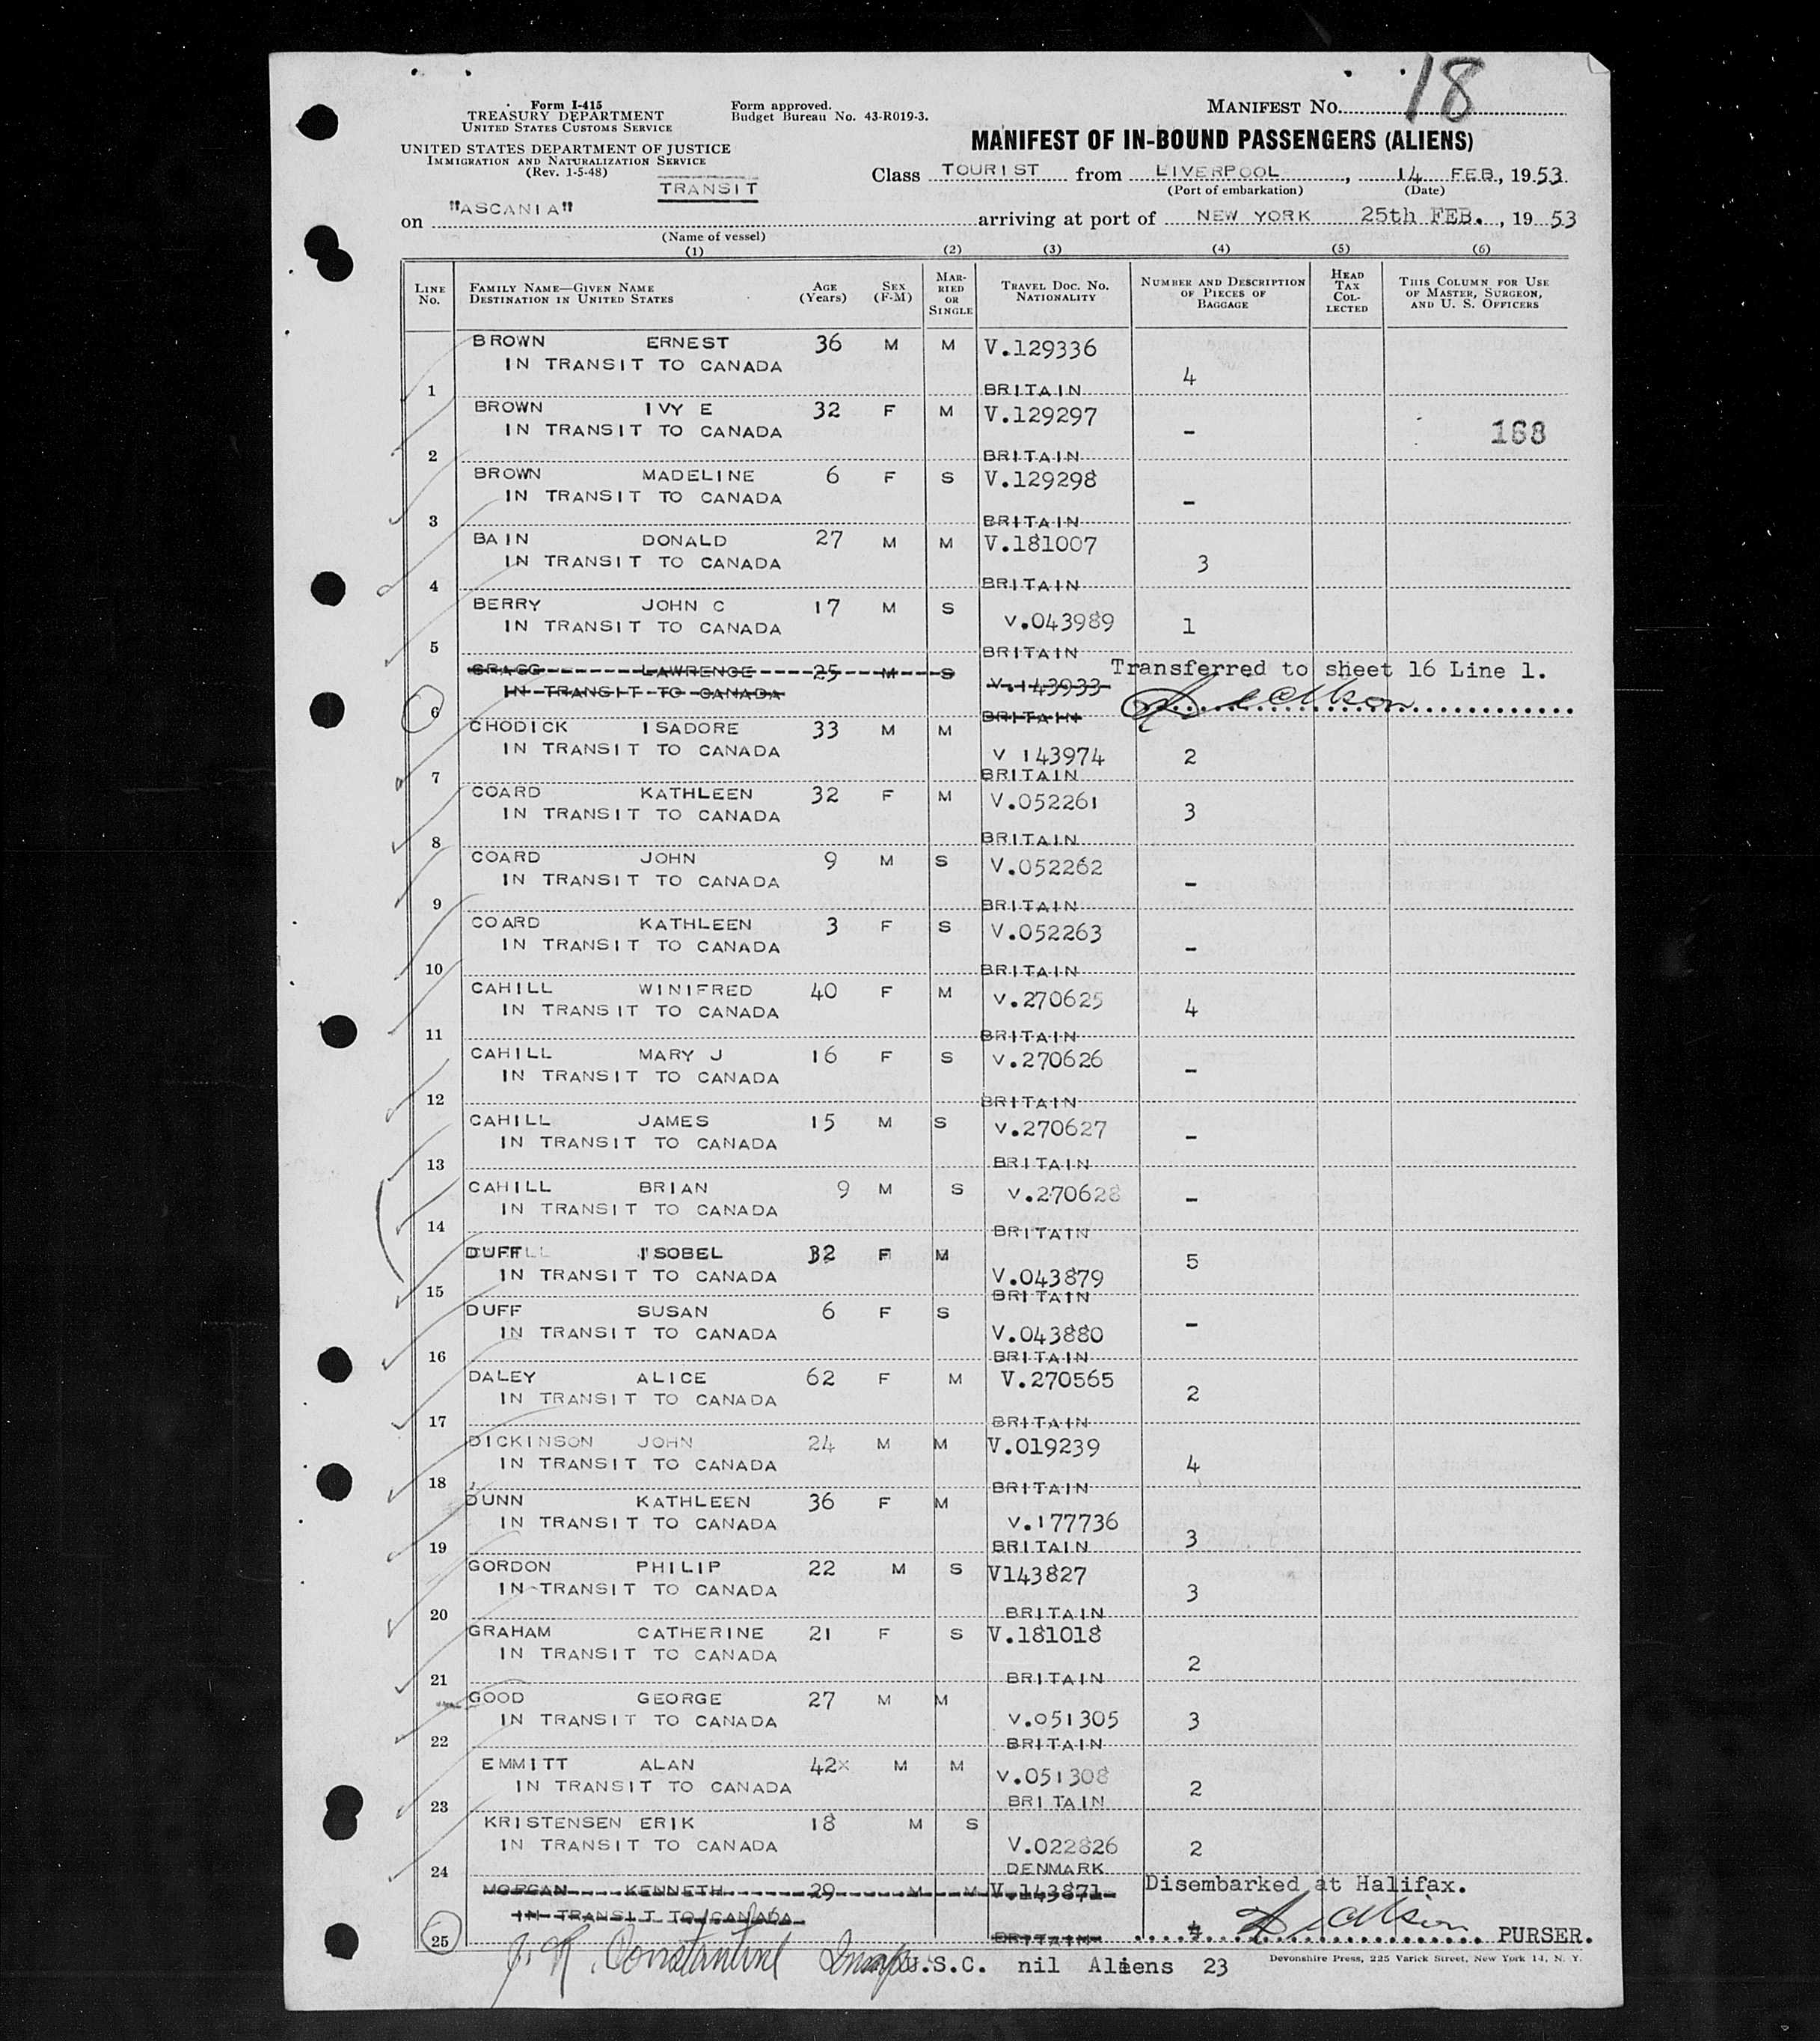 18
Form I-415
TREASURY DEPARTMENT
UNITED STATES CUSTOMS SERVICE
Form approved.
Budget Bureau No. 43-R019-3.
MANIFEST NO.
UNITED STATES DEPARTMENT OF JUSTICE
IMMIGRATION AND NATURALIZATION SERVICE
(Rev. 1-5-48)
MANIFEST OF IN-BOUND PASSENGERS (ALIENS)
TRANSIT
Class TOURIST from LIVERPOOL, 14 FEB, 1953
(Port of embarkation) (Date)
on "ASCANIA" arriving at port of NEW YORK 25th FEB., 1953
(Name of vessel)
(1) (2) (3) (4) (5) (6)
LINE No. FAMILY NAME—GIVEN NAME DESTINATION IN UNITED STATES AGE (YEARS) SEX (F-M) MARRIED OR SINGLE TRAVEL DOC. NO. NATIONALITY NUMBER AND DESCRIPTION OF PIECES OF BAGGAGE HEAD TAX COLLECTED THIS COLUMN FOR USE OF MASTER, SURGEON, AND U. S. OFFICERS
BROWN ERNEST 36 M M V.129336
IN TRANSIT TO CANADA 4
1 BRITAIN
BROWN IVY E 32 F M V.129297
IN TRANSIT TO CANADA - 188
2 BRITAIN
BROWN MADELINE 6 F S V.129298
IN TRANSIT TO CANADA -
3 BRITAIN
BAIN DONALD 27 M M V.181007
IN TRANSIT TO CANADA 3
4 BRITAIN
BERRY JOHN C 17 M S V.043989
IN TRANSIT TO CANADA 1
5 BRITAIN
BRAGG LAWRENCE 25 M S V.143933 Transferred to sheet 16 Line 1.
IN TRANSIT TO CANADA
6 BRITAIN
CHODICK ISADORE 33 M M
IN TRANSIT TO CANADA V 143974 2
7 BRITAIN
COARD KATHLEEN 32 F M V.052261
IN TRANSIT TO CANADA 3
8 BRITAIN
COARD JOHN 9 M S V.052262
IN TRANSIT TO CANADA -
9 BRITAIN
COARD KATHLEEN 3 F S V.052263
IN TRANSIT TO CANADA -
10 BRITAIN
CAHILL WINIFRED 40 F M V.270625
IN TRANSIT TO CANADA 4
11 BRITAIN
CAHILL MARY J 16 F S V.270626
IN TRANSIT TO CANADA -
12 BRITAIN
CAHILL JAMES 15 M S V.270627
IN TRANSIT TO CANADA -
13 BRITAIN
CAHILL BRIAN 9 M S V.270628
IN TRANSIT TO CANADA -
14 BRITAIN
DUFF ISOBEL 32 F M 5
IN TRANSIT TO CANADA V.043879
15 BRITAIN
DUFF SUSAN 6 F S
IN TRANSIT TO CANADA V.043880 -
16 BRITAIN
DALEY ALICE 62 F M V.270565
IN TRANSIT TO CANADA 2
17 BRITAIN
DICKINSON JOHN 24 M M V.019239
IN TRANSIT TO CANADA 4
18 BRITAIN
DUNN KATHLEEN 36 F M
IN TRANSIT TO CANADA V.177736
19 BRITAIN 3
GORDON PHILIP 22 M S V143827
IN TRANSIT TO CANADA 3
20 BRITAIN
GRAHAM CATHERINE 21 F S V.181018
IN TRANSIT TO CANADA 2
21 BRITAIN
GOOD GEORGE 27 M M
IN TRANSIT TO CANADA V.051305 3
22 BRITAIN
EMMITT ALAN 42x M M V.051308
IN TRANSIT TO CANADA 2
23 BRITAIN
KRISTENSEN ERIK 18 M S
IN TRANSIT TO CANADA V.022826 2
24 DENMARK
MORGAN KENNETH 29 M M V.143871 Disembarked at Halifax.
IN TRANSIT TO CANADA
25 BRITAIN 4 PURSER.
J. R. Constantine U.S.C. nil Aliens 23
Devonshire Press, 225 Varick Street, New York 14, N. Y.